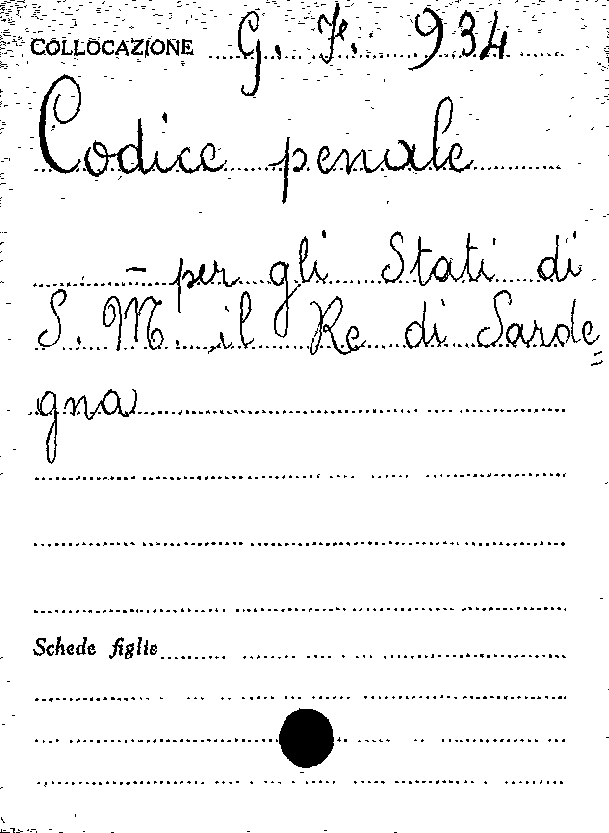 COLLOCAZIONE G. F. 934
Codice penale
- per gli Stati di
S. M. il Re di Sarde=
gna
Schede figlie